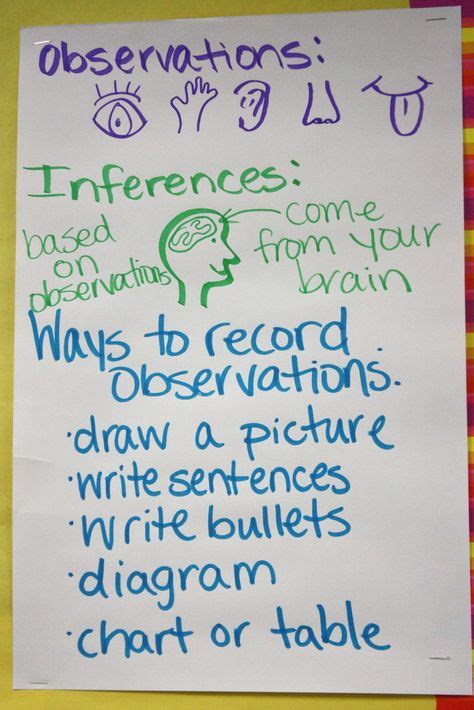 Observations:
Inferences:
based
on
observations
come
from your
brain
Ways to record
observations.
·draw a picture
·write sentences
·write bullets
·diagram
·chart or table